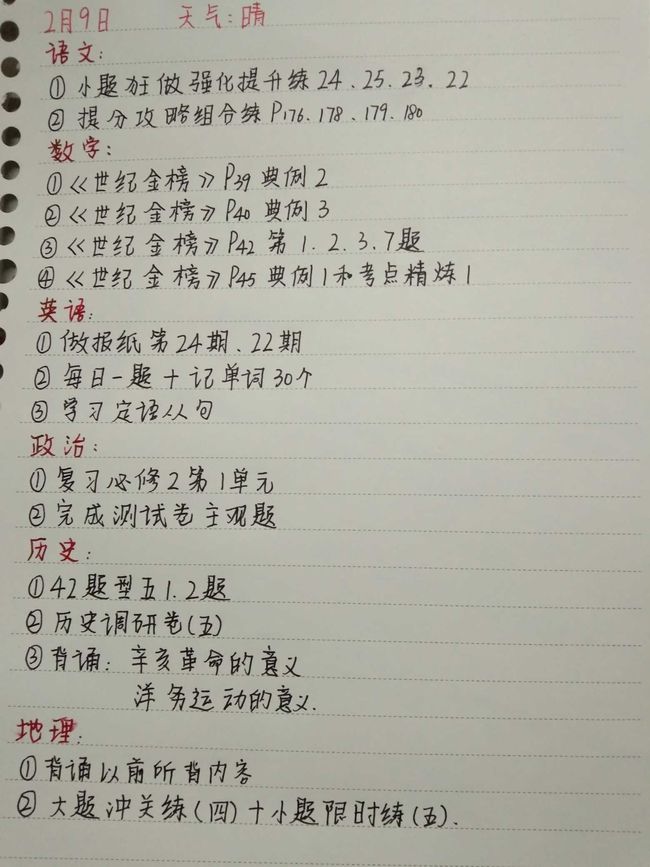 2月9日 天气:晴
语文:
①小题狂做强化提升练24.25.23.22
②提分攻略组合练P176.178.179.180
数字:
①《世纪金榜》P39典例2
②《世纪金榜》P40典例3
③《世纪金榜》P42第1.2.3.7题
④《世纪金榜》P45典例1和考点精炼1
英语:
①做报纸第24期、22期
②每日一题+记单词30个
③学习定语从句
政治:
①复习必修2第1单元
②完成测试卷主观题
历史:
①42题型五1.2题
②历史调研卷(五)
③背诵:辛亥革命的意义
洋务运动的意义.
地理:
①背诵以前听背内容
②大题冲关练(四)+小题限时练(五).